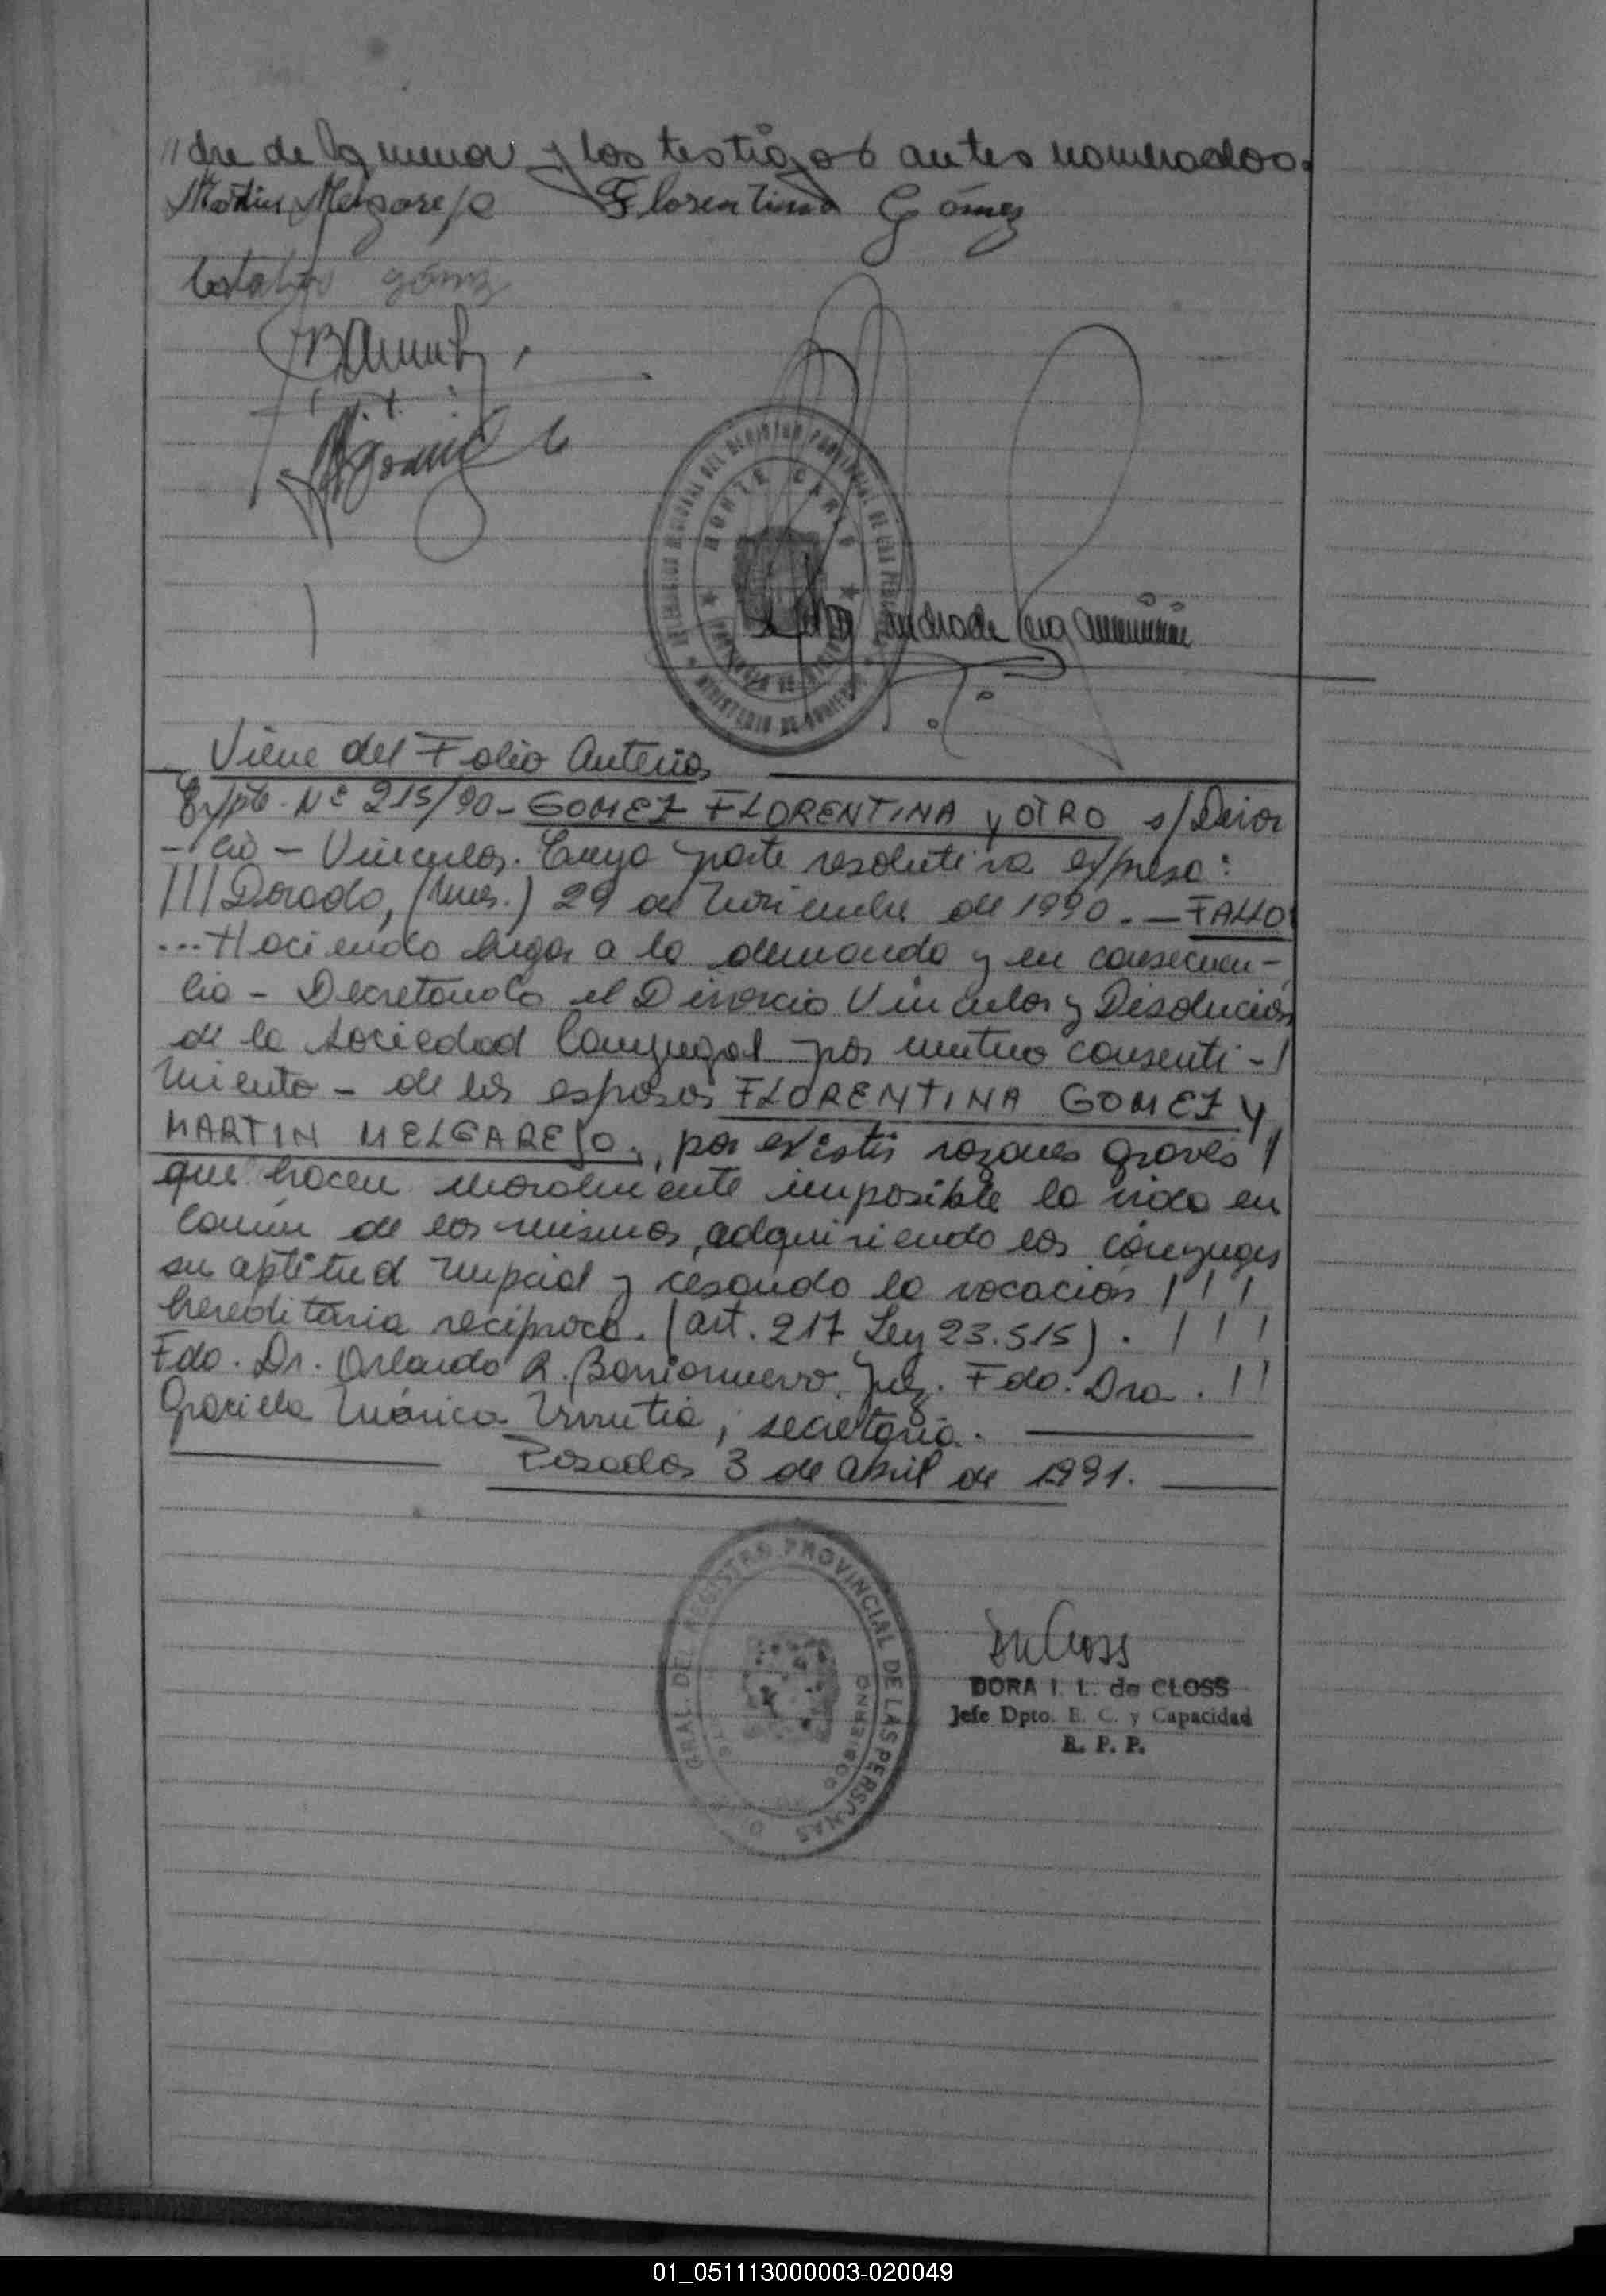 //dre de la menor y los testigos antes nombrados.
Martin Melgarejo Florentina Gómez
gómez
DELEGACION REGIONAL DEL REGISTRO PROVINCIAL DE LAS PERSONAS
MONTE CARLO
PROVINCIA DE MISIONES
MINISTERIO DE GOBIERNO
Andrade
Viene del Folio Anterior
Expte. Nº 215/90 - GOMEZ FLORENTINA y OTRO s/Divor
-cio - Vincular. Cuya parte resolutiva expresa:
///Dorado, (Mnes.) 29 de Noviembre de 1990. — FALLO:
...Haciendo lugar a la demanda y en consecuen-
cia - Decretando el Divorcio Vincular y Disolución
de la Sociedad Conyugal por mutuo consenti-/
miento - de los esposos FLORENTINA GOMEZ y
MARTIN MELGAREJO., por existir razones graves /
que hacen moralmente imposible la vida en
común de los mismos, adquiriendo los cónyuges
su aptitud nupcial y cesando la vocación ///
hereditaria recíproca. (art. 217 Ley 23.515). ///
Fdo. Dr. Orlando R. Barrionuevo, Juez. Fdo. Dra. //
Graciela Mónica Urrutia, secretaria.
Posadas 3 de abril de 1991.
GRAL. DEL REGISTRO PROVINCIAL DE LAS PERSONAS
DCloss
DORA I. L. de CLOSS
Jefe Dpto. E. C. y Capacidad
R. P. P.
01_051113000003-020049